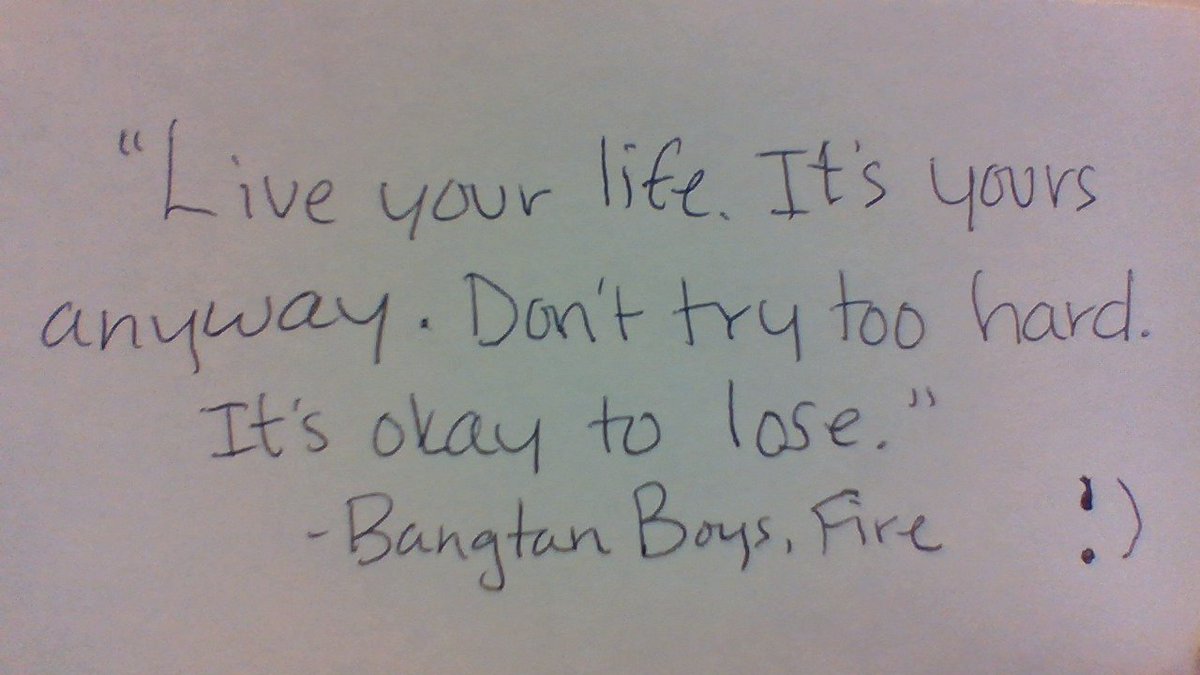 "Live your life. It's yours
anyway. Don't try too hard.
It's okay to lose."
-Bangtan Boys, Fire :)